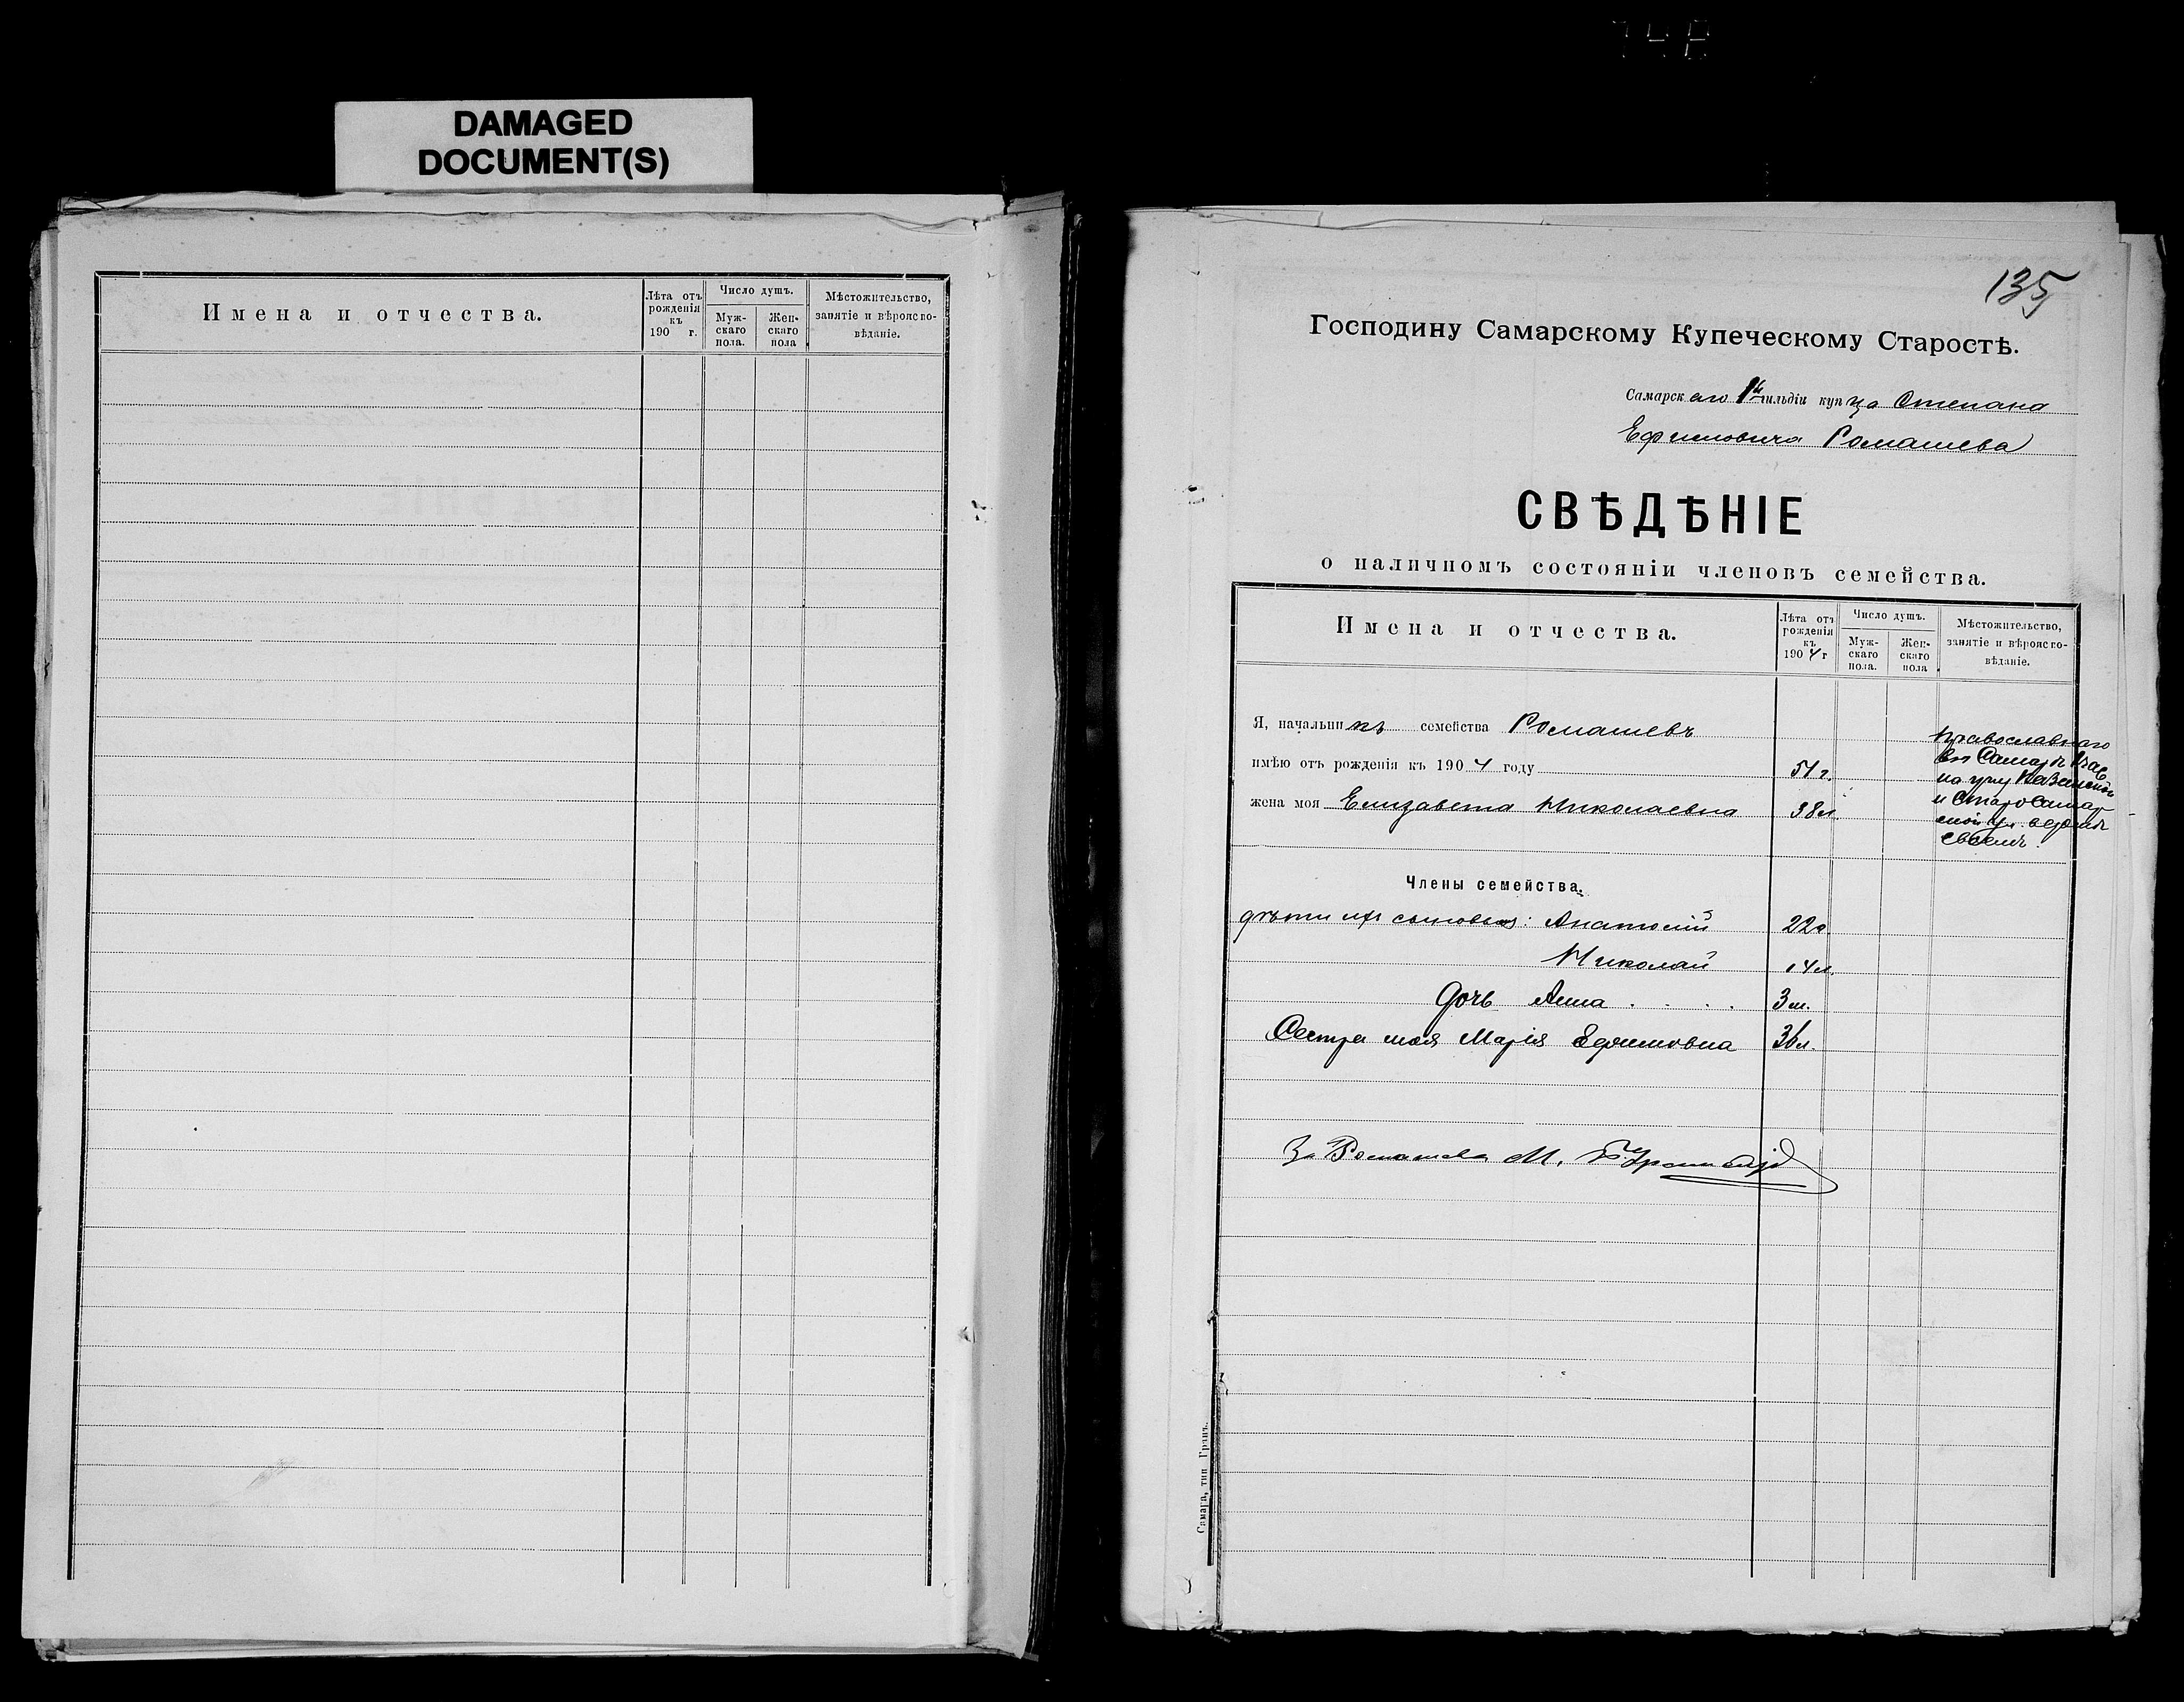 DAMAGED
DOCUMENT(S)
Имена и отчества.
Лѣта отъ рожденія къ 190 г.
Число душъ.
Муж-скаго пола.
Жен-скаго пола
Мѣстожительство, занятіе и вѣроиспо-вѣданіе.
135
Господину Самарскому Купеческому Старостѣ.
Самарскаго 1й гильдіи купца Степана
Ефимовича Ромашева
СВѢДѢНІЕ
о наличномъ состояніи членовъ семейства.
Имена и отчества.
Лѣта отъ рожденія къ 1904 г
Число душъ.
Муж-скаго пола.
Жен-скаго пола
Мѣстожительство, занятіе и вѣроиспо-вѣданіе.
Я, начальникъ семейства Ромашевъ
имѣю отъ рожденія къ 1904 году 51 г.
жена моя Елизавета Николаевна 38 л
Православнаго
въ Самарѣ
на углу Казанской
и Старосамар
ской ул. въ домѣ
своемъ.
Члены семейства.
дѣти их сыновья: Анатолій 22
Николай 14 л.
дочь Анна . . . . 3 м.
Сестра моя Марія Ефимовна 36 л.
За Ромашева М.
Самара, тип. Гранъ.